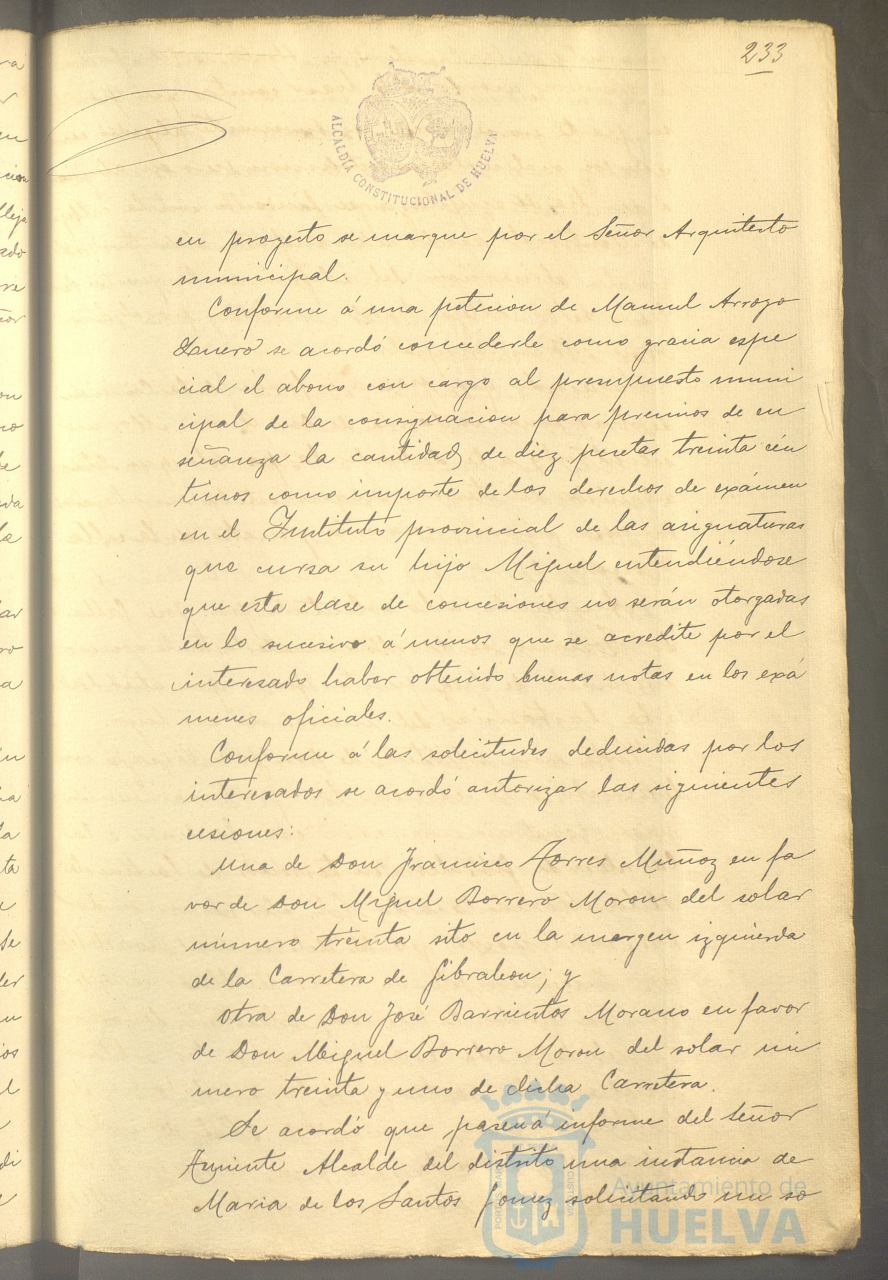 233
ALCALDÍA CONSTITUCIONAL DE HUELVA
en proyecto se marque por el Señor Arquitecto
municipal.
Conforme á una peticion de Manuel Arroyo
se acordó concederle como gracia espe
cial el abono con cargo al presupuesto muni
cipal de la consignacion para premios de en
señanza la cantidad de diez pesetas treinta cén
timos como importe de los derechos de exámen
en el Instituto provincial de las asignaturas
que cursa su hijo Miguel entendiéndose
que esta clase de concesiones no serán otorgadas
en lo sucesivo á menos que se acredite por el
interesado haber obtenido buenas notas en los exá
menes oficiales.
Conforme á las solicitudes deducidas por los
interesados se acordó autorizar las siguientes
cesiones:
Una de Don Francisco Torres Muñoz en fa
vor de Don Miguel Borrero Moron del solar
número treinta sito en la margen izquierda
de la Carretera de Gibraleon; y
otra de Don José Barrientos Morano en favor
de Don Miguel Borrero Moron del solar nú
mero treinta y uno de dicha Carretera.
Se acordó que pase á informe del Señor
Teniente Alcalde del distrito una instancia de
Maria de los Santos Gomez solicitando un so
Ayuntamiento de
HUELVA